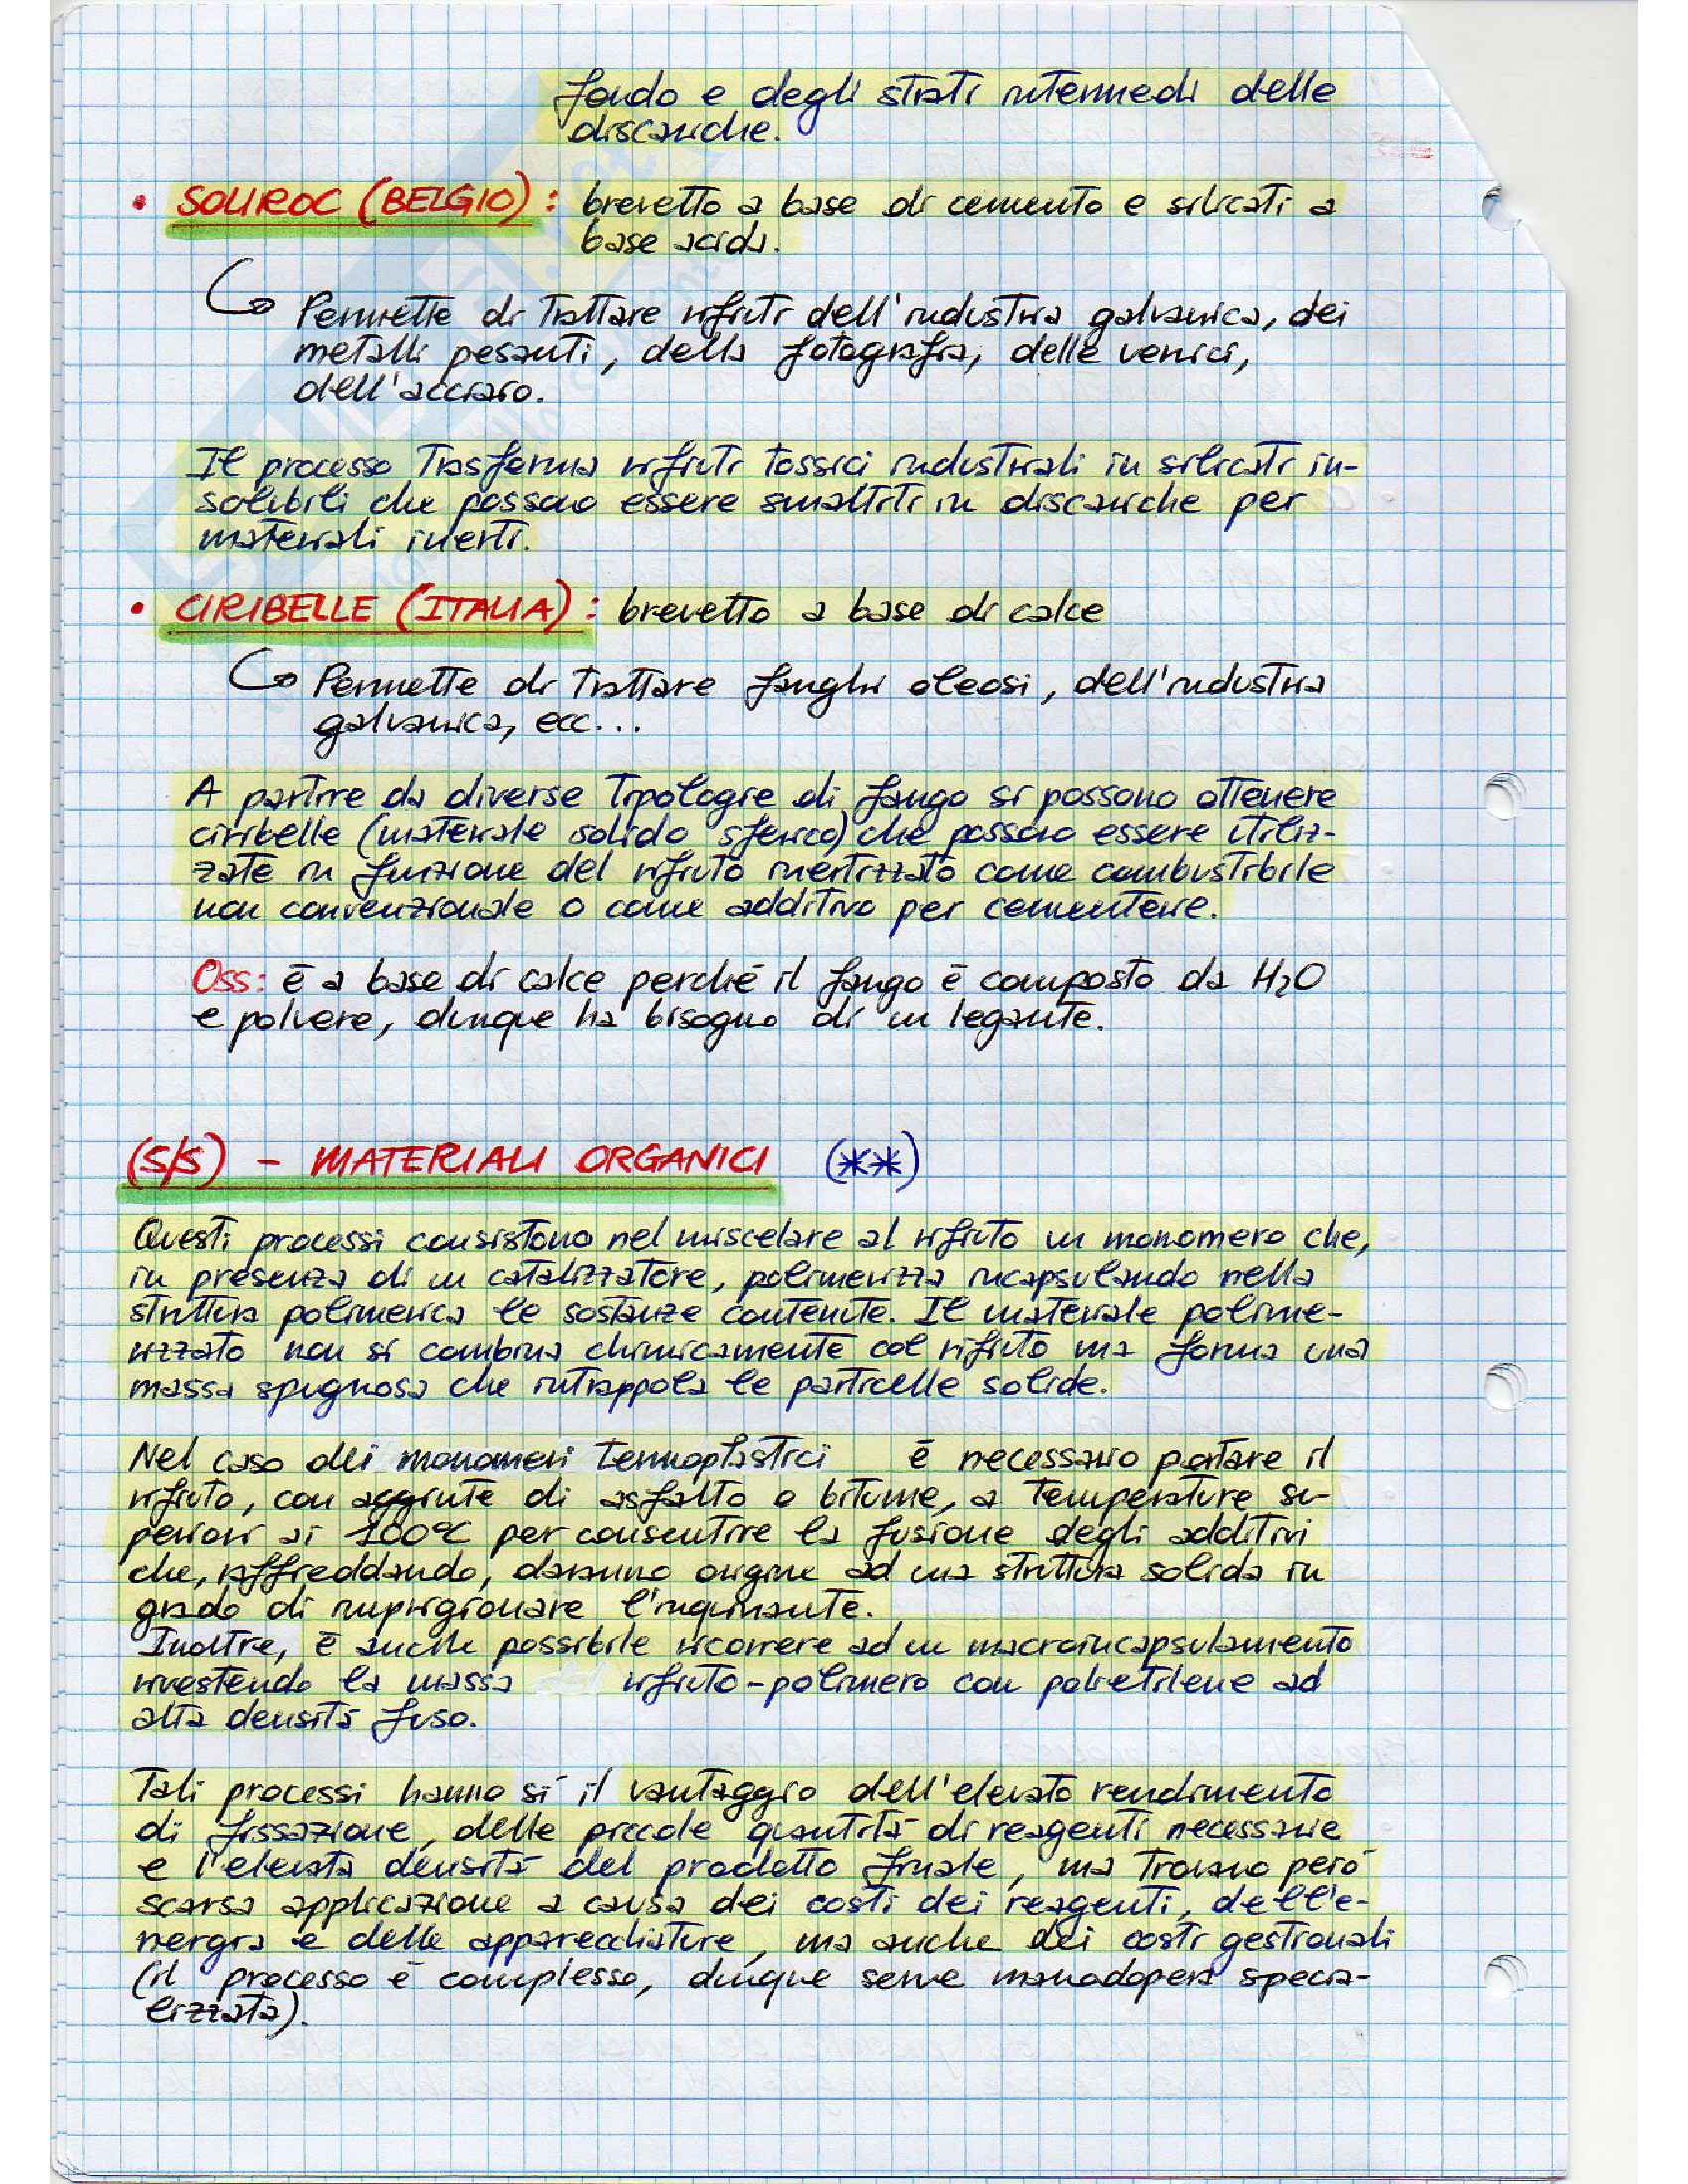 fondo e degli strati intermedi delle
discariche.
• SOLIROC (BELGIO): brevetto a base di cemento e silicati a
base acida.
Permette di trattare rifiuti dell'industria galvanica, dei
metalli pesanti, della fotografia, delle vernici,
dell'acciaio.
Il processo trasforma rifiuti tossici industriali in silicati in-
solubili che possono essere smaltiti in discariche per
materiali inerti.
• CIRIBELLE (ITALIA): brevetto a base di calce
Permette di trattare fanghi oleosi, dell'industria
galvanica, ecc...
A partire da diverse tipologie di fango si possono ottenere
ciribelle (materiale solido sferico) che possono essere utiliz-
zate in funzione del rifiuto inertizzato come combustibile
non convenzionale o come additivo per cementerie.
Oss: è a base di calce perché il fango è composto da H₂O
e polvere, dunque ha bisogno di un legante.
(S/S) - MATERIALI ORGANICI (**)
Questi processi consistono nel miscelare al rifiuto un monomero che,
in presenza di un catalizzatore, polimerizza incapsulando nella
struttura polimerica le sostanze contenute. Il materiale polime-
rizzato non si combina chimicamente col rifiuto ma forma una
massa spugnosa che intrappola le particelle solide.
Nel caso dei monomeri termoplastici è necessario portare il
rifiuto, con aggiunte di asfalto o bitume, a temperature su-
periori ai 100°C per consentire la fusione degli additivi
che, raffreddando, daranno origine ad una struttura solida in
grado di imprigionare l'inquinante.
Inoltre, è anche possibile ricorrere ad un macroincapsulamento
rivestendo la massa rifiuto-polimero con polietilene ad
alta densità fuso.
Tali processi hanno sì il vantaggio dell'elevato rendimento
di fissazione, delle piccole quantità di reagenti necessarie
e l'elevata densità del prodotto finale, ma trovano però
scarsa applicazione a causa dei costi dei reagenti, dell'e-
nergia e delle apparecchiature, ma anche dei costi gestionali
(il processo è complesso, dunque serve manodopera specia-
lizzata).